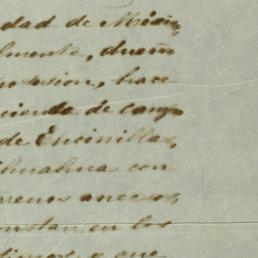 dad de Méxi
lmente, dueñ
potesion, hace
cienda de camp
de Encinillas,
ihuahua con
rrenos anecsos,
onstar en los